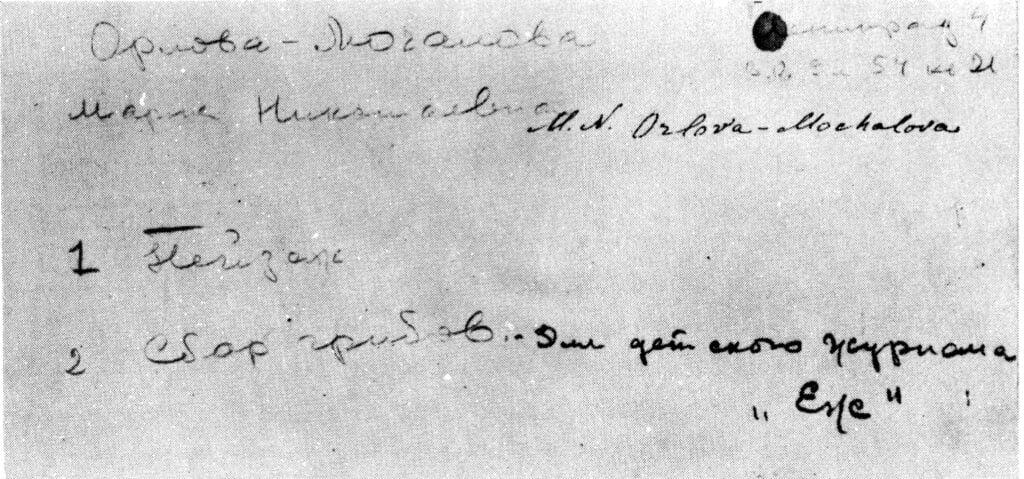 Орлова-Мочалова
Ленинград 4
В.О. 9 л 54 кв 21
Мария Николаевна
M.N. Orlova-Mochalova
1 Пейзаж
2 Сбор грибов.- Для детского журнала
„Еж"